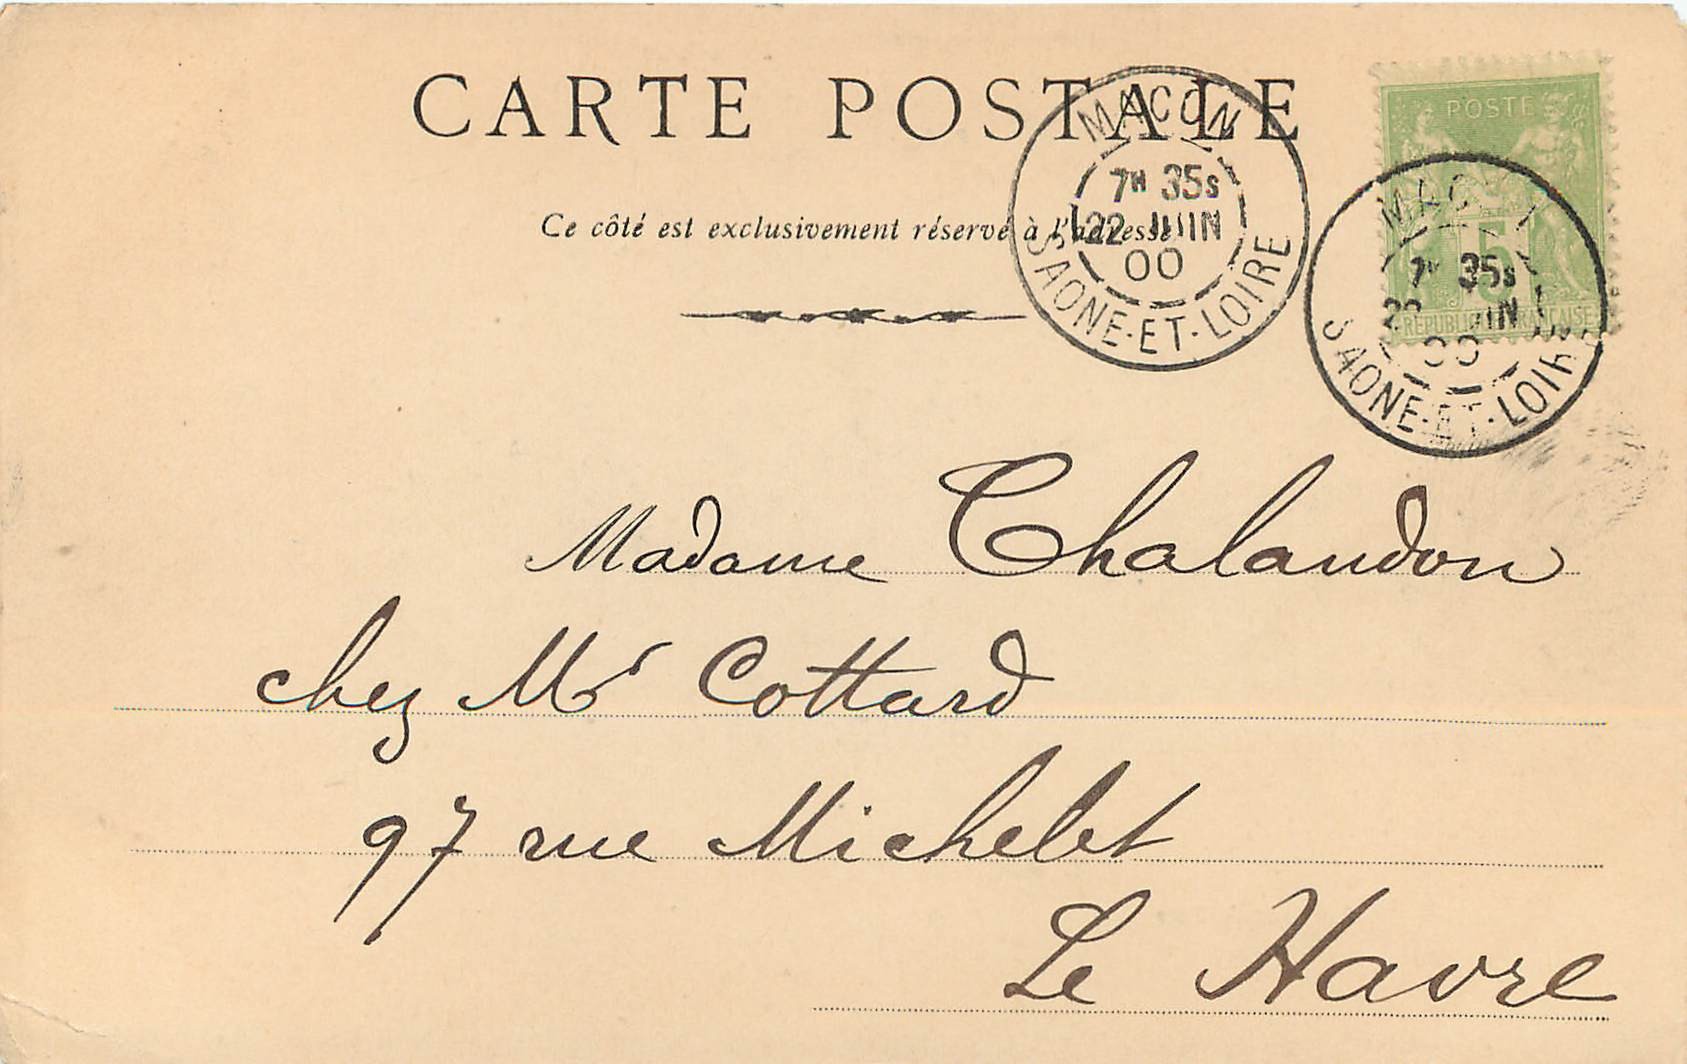 CARTE POSTALE
Ce côté est exclusivement réservé à l'adresse
MACON
7H 35S
22 JUIN
00
SAONE-ET-LOIRE
POSTE
5
REPUBLIQUE FRANCAISE
7H 35S
SAONE-ET-LOIRE
Madame Chalandon
chez Mr Cottard
97 rue Michelet
Le Havre